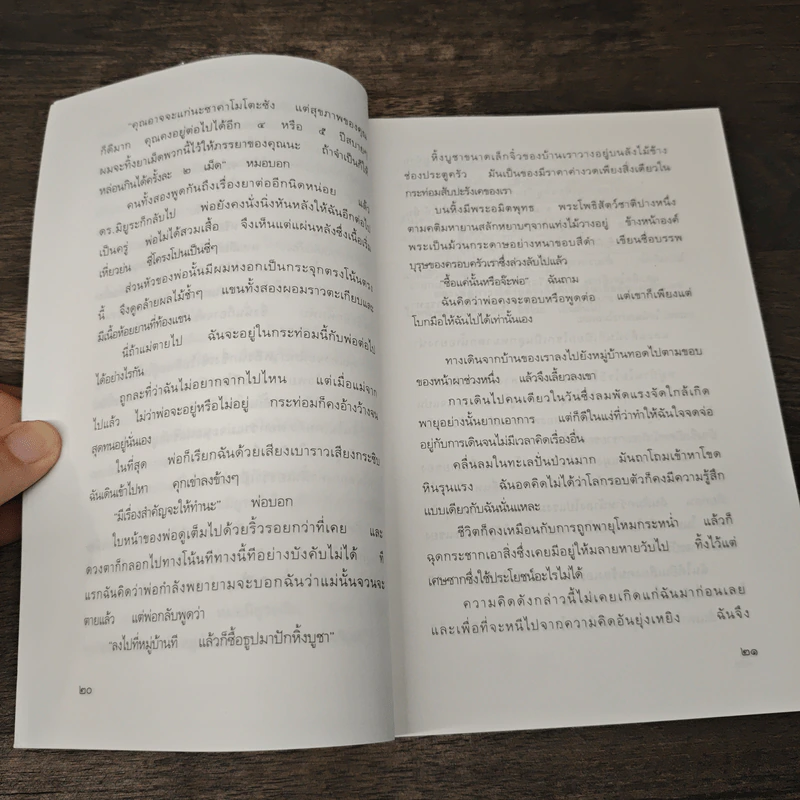 "คุณอาจจะแก่นะซาคาโมโตะซัง แต่สุขภาพของคุณ
ก็ดีมาก คุณคงอยู่ต่อไปได้อีก ๔ หรือ ๕ ปีสบายๆ
ผมจะทิ้งยาเม็ดพวกนี้ไว้ให้ภรรยาของคุณนะ ถ้าจำเป็นก็ให้
หล่อนกินได้ครั้งละ ๒ เม็ด" หมอบอก
คนทั้งสองพูดกันถึงเรื่องยาต่ออีกนิดหน่อย แล้ว
ดร.มิยูระก็กลับไป พ่อยังคงนั่งนิ่งหันหลังให้ฉันอีกต่อไป
เป็นครู่ พ่อไม่ได้สวมเสื้อ จึงเห็นแต่แผ่นหลังซึ่งเนื้อเริ่ม
เหี่ยวย่น ซี่โครงโปนเป็นซี่ๆ
ส่วนหัวของพ่อนั้นมีผมหงอกเป็นกระจุกตรงโน้นตรง
นี้ จึงดูคล้ายผลไม้ช้ำๆ แขนทั้งสองผอมราวตะเกียบและ
มีเนื้อห้อยยานที่ท้องแขน
นี่ถ้าแม่ตายไป ฉันจะอยู่ในกระท่อมนี้กับพ่อต่อไป
ได้อย่างไรกัน
ถูกละที่ว่าฉันไม่อยากจากไปไหน แต่เมื่อแม่จาก
ไปแล้ว ไม่ว่าพ่อจะอยู่หรือไม่อยู่ กระท่อมก็คงอ้างว้างจน
สุดทนอยู่นั่นเอง
ในที่สุด พ่อก็เรียกฉันด้วยเสียงเบาราวเสียงกระซิบ
ฉันเดินเข้าไปหา คุกเข่าลงข้างๆ
"มีเรื่องสำคัญจะให้ทำนะ" พ่อบอก
ใบหน้าของพ่อดูเต็มไปด้วยริ้วรอยกว่าที่เคย และ
ดวงตาก็กลอกไปทางโน้นทีทางนี้ทีอย่างบังคับไม่ได้ ที
แรกฉันคิดว่าพ่อกำลังพยายามจะบอกฉันว่าแม่นั้นจวนจะ
ตายแล้ว แต่พ่อกลับพูดว่า
"ลงไปที่หมู่บ้านที แล้วก็ซื้อธูปมาปักหิ้งบูชา"
๒๐
หิ้งบูชาขนาดเล็กจิ๋วของบ้านเราวางอยู่บนลังไม้ข้าง
ช่องประตูครัว มันเป็นของมีราคาค่างวดเพียงสิ่งเดียวใน
กระท่อมสับปะรังเคของเรา
บนหิ้งมีพระอมิตพุทธ พระโพธิสัตว์ชาติปางหนึ่ง
ตามคติมหายานสลักหยาบๆจากแท่งไม้วางอยู่ ข้างหน้าองค์
พระเป็นม้วนกระดาษอย่างหนาขอบสีดำ เขียนชื่อบรรพ
บุรุษของครอบครัวเราซึ่งล่วงลับไปแล้ว
"ซื้อแค่นั้นหรือจ๊ะพ่อ" ฉันถาม
ฉันคิดว่าพ่อคงจะตอบหรือพูดต่อ แต่เขาก็เพียงแต่
โบกมือให้ฉันไปได้เท่านั้นเอง
ทางเดินจากบ้านของเราลงไปยังหมู่บ้านทอดไปตามขอบ
ของหน้าผาช่วงหนึ่ง แล้วจึงเลี้ยวลงเขา
การเดินไปคนเดียวในวันซึ่งลมพัดแรงจัดใกล้เกิด
พายุอย่างนั้นยากเอาการ แต่ก็ดีในแง่ที่ว่าทำให้ฉันใจจดจ่อ
อยู่กับการเดินจนไม่มีเวลาคิดเรื่องอื่น
คลื่นลมในทะเลปั่นป่วนมาก มันถาโถมเข้าหาโขด
หินรุนแรง ฉันอดคิดไม่ได้ว่าโลกรอบตัวก็คงมีความรู้สึก
แบบเดียวกับฉันนั่นแหละ
ชีวิตก็คงเหมือนกับการถูกพายุโหมกระหน่ำ แล้วก็
ฉุดกระชากเอาสิ่งซึ่งเคยมีอยู่ให้มลายหายวับไป ทิ้งไว้แต่
เศษซากซึ่งใช้ประโยชน์อะไรไม่ได้
ความคิดดังกล่าวนี้ไม่เคยเกิดแก่ฉันมาก่อนเลย
และเพื่อที่จะหนีไปจากความคิดอันยุ่งเหยิง ฉันจึง
๒๑